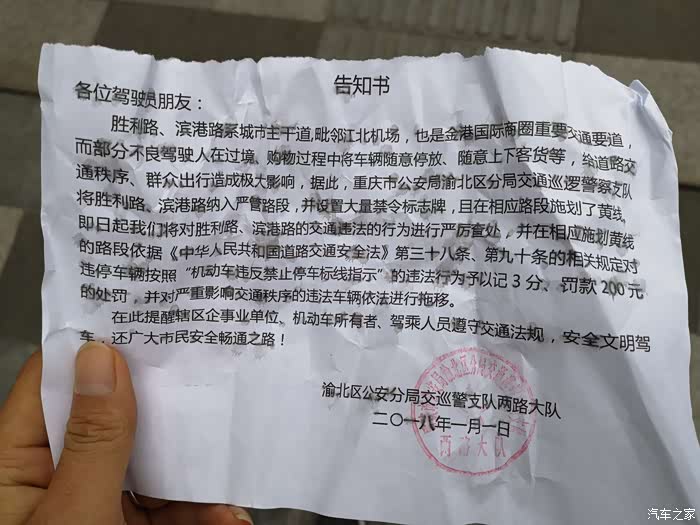 告知书
各位驾驶员朋友：
胜利路、滨港路系城市主干道,毗邻江北机场，也是金港国际商圈重要交通要道，
而部分不良驾驶人在过境、购物过程中将车辆随意停放、随意上下客货等，给道路交
通秩序、群众出行造成极大影响，据此，重庆市公安局渝北区分局交通巡逻警察支队
将胜利路、滨港路纳入严管路段，并设置大量禁令标志牌，且在相应路段施划了黄线，
即日起我们将对胜利路、滨港路的交通违法的行为进行严厉查处，并在相应施划黄线
的路段依据《中华人民共和国道路交通安全法》第三十八条、第九十条的相关规定对
违停车辆按照“机动车违反禁止停车标线指示”的违法行为予以记3分、罚款200元
的处罚，并对严重影响交通秩序的违法车辆依法进行拖移。
在此提醒辖区企事业单位、机动车所有者、驾乘人员遵守交通法规，安全文明驾
车，还广大市民安全畅通之路！
渝北区公安分局交巡警支队两路大队
二〇一八年一月一日
两路大队
汽车之家